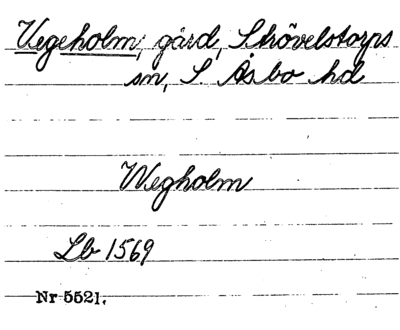 Vegeholm, gård, Strövelstorps
sn, S. Åsbo hd
Wegholm
Lb 1569
Nr 5521.